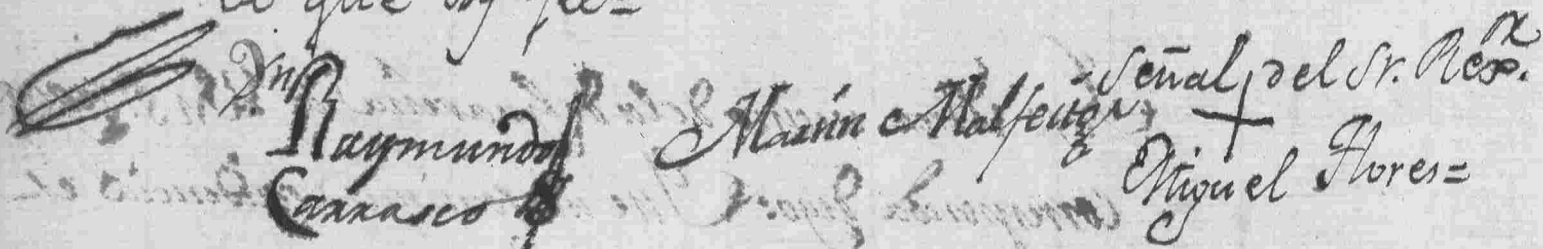 lo que doy fee=
Dn Raymundo
Carrasco
Martin Malfeito
Señal del Sr. Rexr.
Miguel Flores=